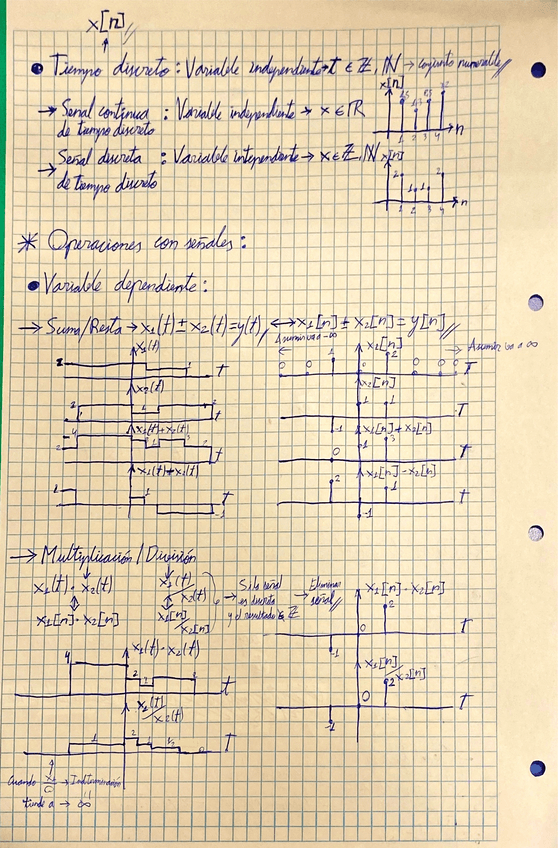 x[n]
• Tiempo discreto: Variable independiente → t ∈ ℤ, ℕ → conjunto numerable
→ Señal continua de tiempo discreto : Variable independiente → x ∈ ℝ
x[n]
1 2 3 4 n
→ Señal discreta de tiempo discreto : Variable independiente → x ∈ ℤ, ℕ
x[n]
2 1 1 2
1 2 3 4 n
* Operaciones con señales:
• Variable dependiente:
→ Suma/Resta → x1(t) ± x2(t) = y(t), ↔ x1[n] ± x2[n] = y[n]
x1(t)
1 T
x2(t)
2 1 2 t
x1(t)+x2(t)
4 2 3 T
x1(t)+x2(t)
1 1 -1 T
Asumir va a -∞
Asumir va a ∞
x1[n]
0 0 1 2 0 0 0 T
x2[n]
-1 1 1 T
x1[n]+x2[n]
0 1 3 T
x1[n]-x2[n]
2 -1 1 T
→ Multiplicación/División
x1(t) · x2(t)
x1[n] · x2[n]
x1(t)/x2(t)
x1[n]/x2[n]
→ Si la señal es discreta y el resultado ℤ → Eliminar señal
x1[n] · x2[n]
-1 0 2 T
x1[n]/x2[n]
-1 0 2 T
x1(t) · x2(t)
4 2 1 2 t
x1(t)/x2(t)
1 2 1 0 T
Cuando x1/0 → Indeterminación
tiende a → ∞